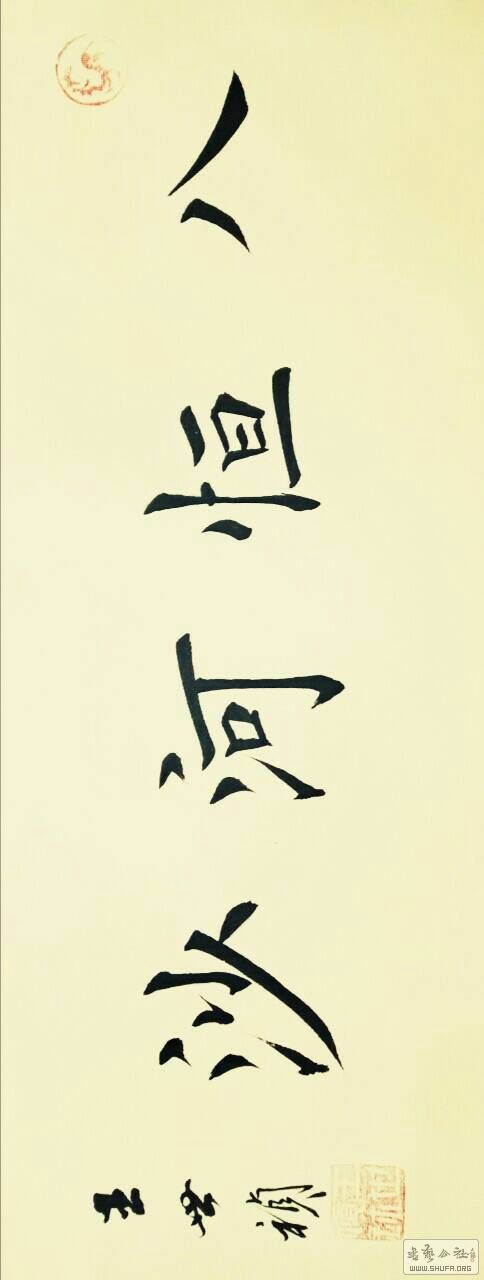 八恒河沙
王世
书艺公社
WWW.SHUFA.ORG